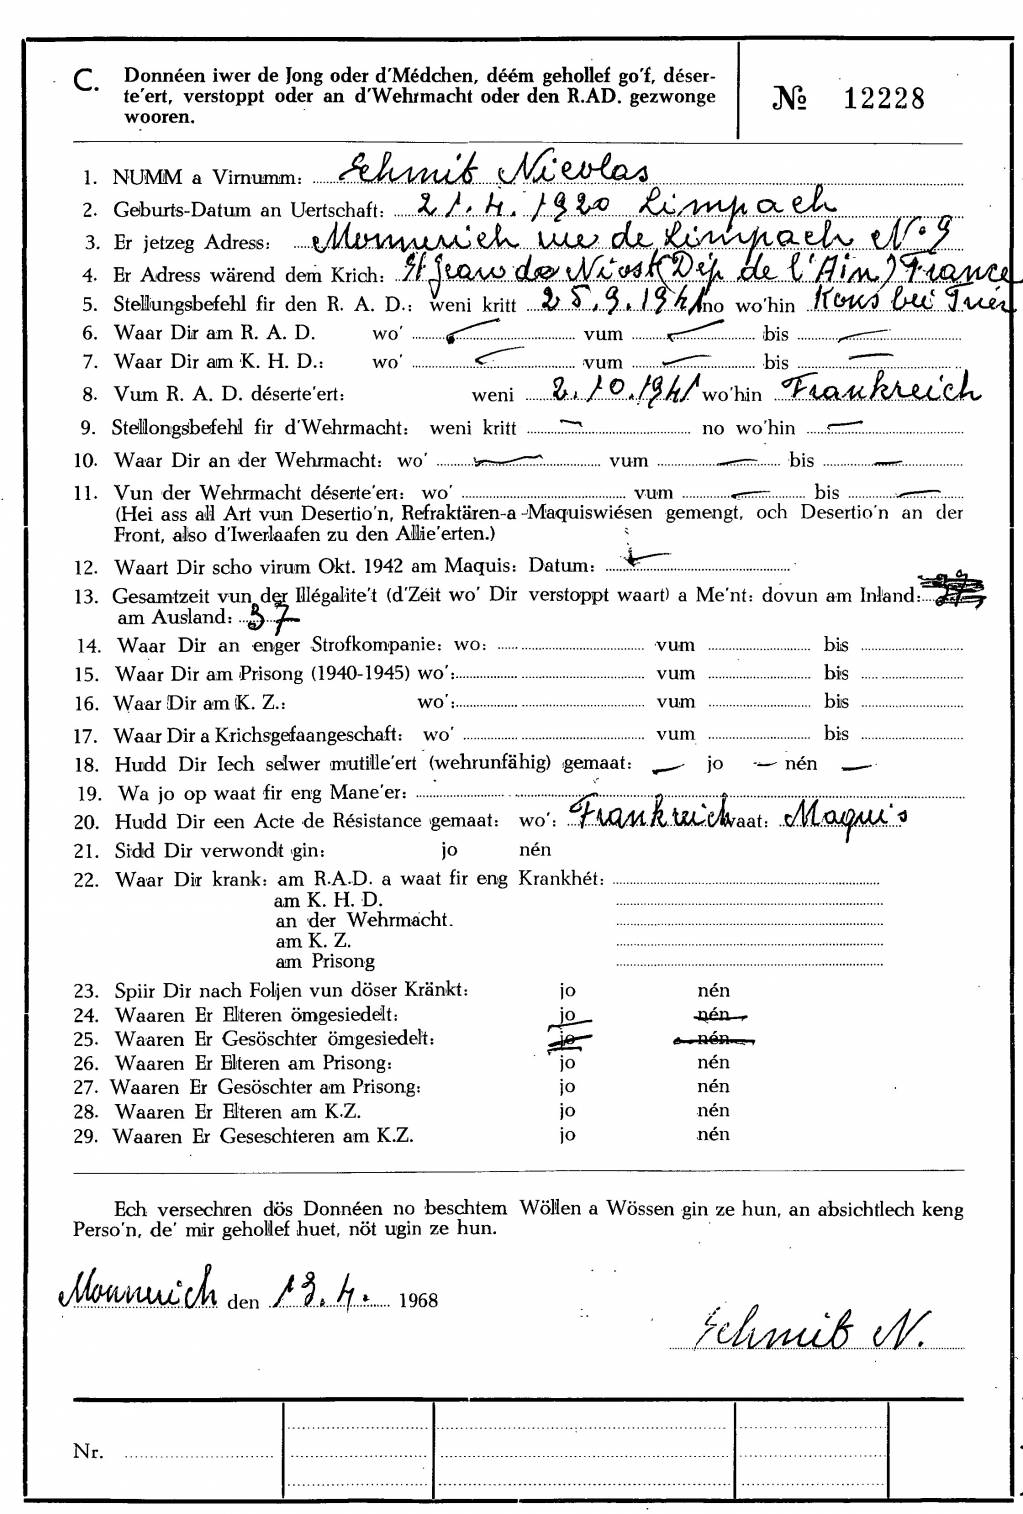 C. Donnéen iwer de Jong oder d'Médchen, déém gehollef go'f, déser-
te'ert, verstoppt oder an d'Wehrmacht oder den R.AD. gezwonge
wooren.
№ 12228
1. NUMM a Virnumm: Schmit Nicolas
2. Geburts-Datum an Uertschaft: 21.4.1920 Limpach
3. Er jetzeg Adress: Monnerich rue de Limpach N° 9
4. Er Adress wärend dem Krich: St Jean de Niost (Dép de l'Ain) France
5. Stellungsbefehl fir den R. A. D.: weni kritt 25.9.1941 no wo'hin Kons bei Trier
6. Waar Dir am R. A. D. wo' — vum — bis —
7. Waar Dir am K. H. D.: wo' — vum — bis —
8. Vum R. A. D. déserte'ert: weni 2.10.1941 wo'hin Frankreich
9. Stellongsbefehl fir d'Wehrmacht: weni kritt — no wo'hin —
10. Waar Dir an der Wehrmacht: wo' — vum — bis —
11. Vun der Wehrmacht déserte'ert: wo' vum — bis —
(Hei ass all Art vun Desertio'n, Refraktären-a -Maquiswiésen gemengt, och Desertio'n an der
Front, also d'Iwerlaafen zu den Allie'erten.)
12. Waart Dir scho virum Okt. 1942 am Maquis: Datum: —
13. Gesamtzeit vun der Illégalite't (d'Zeit wo' Dir verstoppt waart) a Me'nt: dovun am Inland:
am Ausland: 37
14. Waar Dir an enger Strofkompanie: wo: vum bis
15. Waar Dir am Prisong (1940-1945) wo': vum bis
16. Waar Dir am K. Z.: wo': vum bis
17. Waar Dir a Krichsgefaangeschaft: wo' vum bis
18. Hudd Dir Iech selwer mutille'ert (wehrunfähig) gemaat: — jo — nén —
19. Wa jo op waat fir eng Mane'er:
20. Hudd Dir een Acte de Résistance gemaat: wo': Frankreich waat: Maquis
21. Sidd Dir verwondt gin: jo nén
22. Waar Dir krank: am R.A.D. a waat fir eng Krankhét:
am K. H. D.
an der Wehrmacht.
am K. Z.
am Prisong
23. Spiir Dir nach Foljen vun döser Kränkt: jo nén
24. Waaren Er Elteren ömgesiedelt: jo nén
25. Waaren Er Gesöschter ömgesiedelt: jo nén
26. Waaren Er Elteren am Prisong: jo nén
27. Waaren Er Gesöschter am Prisong: jo nén
28. Waaren Er Elteren am K.Z. jo nén
29. Waaren Er Geseschteren am K.Z. jo nén
Ech versechren dös Donnéen no beschtem Wöllen a Wössen gin ze hun, an absichtlech keng
Perso'n, de' mir gehollef huet, nöt ugin ze hun.
Monnerich den 13.4. 1968
Schmit N.
Nr.